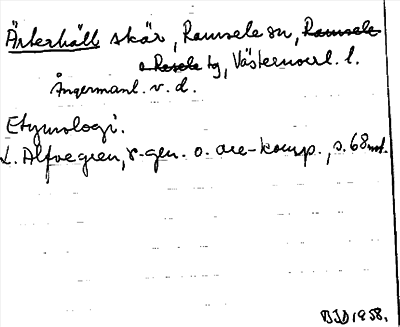 Ärterhäll skär, Ramsele sn, Ramsele
o Resele tg, Västernorrl. l.
Ångermanl. v. d.
Etymologi.
L. Alfvegren, r-gen. o. are-komp., s. 68 not.
BJD 1958.